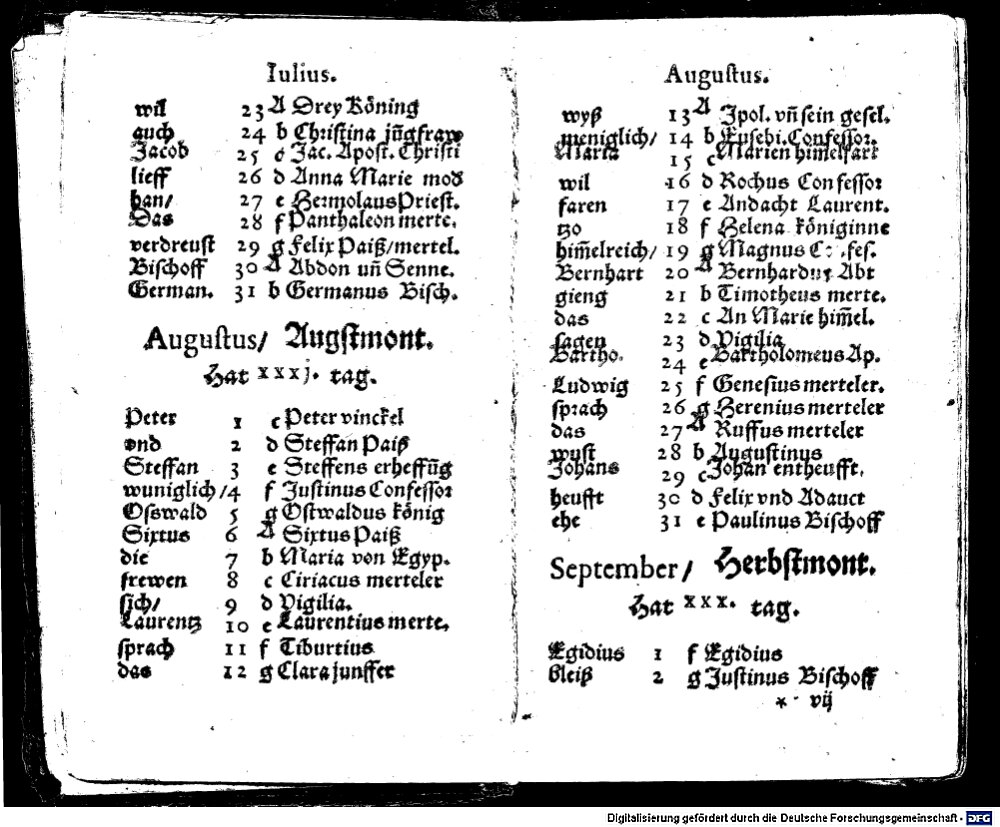 Iulius.
wil 23 A Drey Köning
auch 24 b Christina jūgfraw
Jacob 25 c Jac. Apost. Christi
lieff 26 d Anna Marie mod
han/ 27 e Hermolaus Priest.
Das 28 f Panthaleon merte.
verdreust 29 g Felix Paiß/mertel.
Bischoff 30 A Abdon uñ Senne.
German. 31 b Germanus Bisch.
Augustus/ Augstmont.
Hat xxxj. tag.
Peter 1 c Peter vinckel
vnd 2 d Steffan Paiß
Steffan 3 e Steffens erheffūg
wuniglich/ 4 f Justinus Confessor
Osswald 5 g Ostwaldus König
Sixtus 6 A Sixtus Paiß
die 7 b Maria von Egyp.
frewen 8 c Ciriacus merteler
sich/ 9 d Vigilia.
Laurentz 10 e Laurentius merte.
sprach 11 f Tiburtius
das 12 g Clara junffer
Augustus.
wyß 13 A Ipol. vñ sein gesel.
meniglich/ 14 b Eusebi. Confessor.
Maria 15 c Marien himelfart
wil 16 d Rochus Confessor
faren 17 e Andacht Laurent.
tzo 18 f Helena königinne
him̄elreich/ 19 g Magnus Confes.
Bernhart 20 A Bernhardus Abt
gieng 21 b Timotheus merte.
das 22 c An Marie him̄el.
sagen 23 d Vigilia
Bartho. 24 e Bartholomeus Ap.
Ludwig 25 f Genesius merteler.
sprach 26 g Herenius merteler
das 27 A Ruffus merteler
wust 28 b Augustinus
Johans 29 c Johan entheufft.
heufft 30 d Felix vnd Adauct
ehe 31 e Paulinus Bischoff
September/ Herbstmont.
Hat xxx. tag.
Egidius 1 f Egidius
bleiß 2 g Justinus Bischoff
* vij
Digitalisierung gefördert durch die Deutsche Forschungsgemeinschaft - DFG